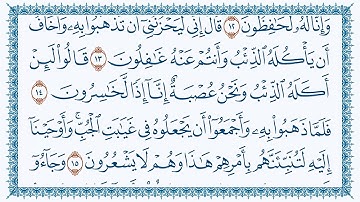 وَإِنَّا لَهُۥ لَحَٰفِظُونَ ١٢ قَالَ إِنِّي لَيَحۡزُنُنِيٓ أَن تَذۡهَبُواْ بِهِۦ وَأَخَافُ
أَن يَأۡكُلَهُ ٱلذِّئۡبُ وَأَنتُمۡ عَنۡهُ غَٰفِلُونَ ١٣ قَالُواْ لَئِنۡ
أَكَلَهُ ٱلذِّئۡبُ وَنَحۡنُ عُصۡبَةٌ إِنَّآ إِذٗا لَّخَٰسِرُونَ ١٤
فَلَمَّا ذَهَبُواْ بِهِۦ وَأَجۡمَعُوٓاْ أَن يَجۡعَلُوهُ فِي غَيَٰبَتِ ٱلۡجُبِّۚ وَأَوۡحَيۡنَآ
إِلَيۡهِ لَتُنَبِّئَنَّهُم بِأَمۡرِهِمۡ هَٰذَا وَهُمۡ لَا يَشۡعُرُونَ ١٥ وَجَآءُوٓ